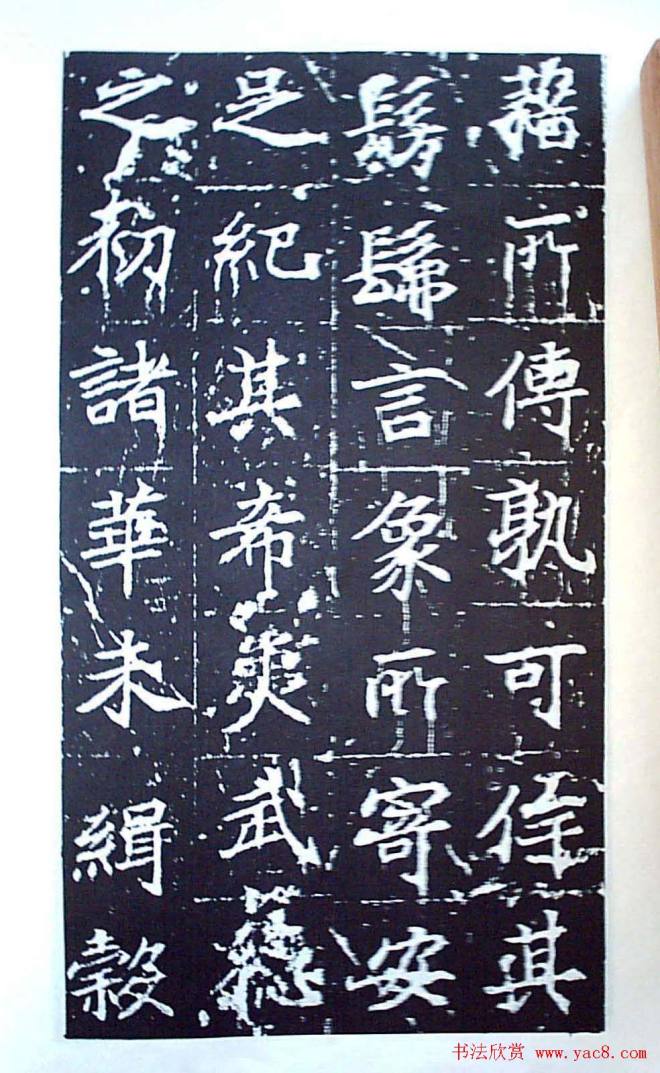 籀所傳孰可侔其
髣髴言象所寄安
足紀其希夷武德
之初諸華未緝穀
书法欣赏 www.yac8.com